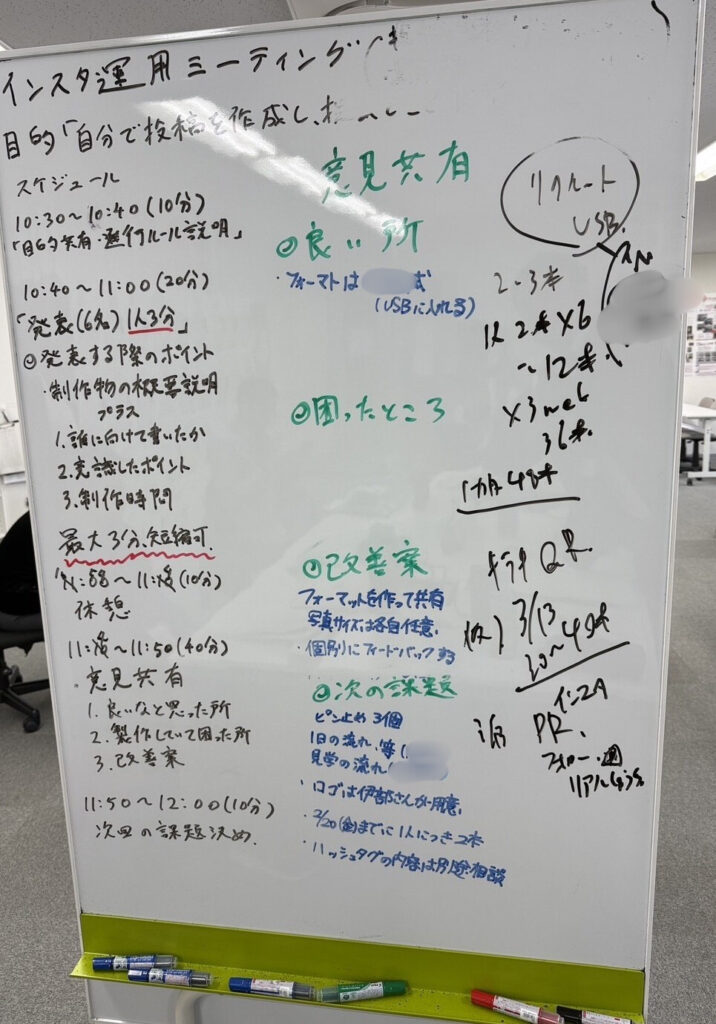 インスタ運用ミーティング
目的「自分で投稿を作成し、
スケジュール
10:30～10:40(10分)
「目的共有・進行ルール説明」
10:40～11:00(20分)
「発表(6名) 1人3分」
◎発表する際のポイント
・制作物の概要説明
プラス
1.誰に向けて書いたか
2.意識したポイント
3.制作時間
最大3分、短縮可
～11: (10分)
休憩
～11:50(40分)
意見共有
1.良いなと思った所
2.製作していて困った所
3.改善案
11:50～12:00(10分)
次回の課題決め.
意見共有
◎良い所
・フォーマトは
(USBに入れる)
◎困ったところ
◎改善案
フォーマットを作って共有
写真サイズは各自任意.
・個別にフィードバックする
◎次の課題
ピン止め 3個
1日の流れ、等(
見学の流れ
・ロゴは伊部さんが用意.
・2/20(金)までに1人につき2本
・ハッシュタグの内容は別途相談
リクルート
USB.
2～3本
2本×6
～12本
×3
36本.
1カ月48本
QR.
仮) 3/13
PR.
フォロー・
リアル